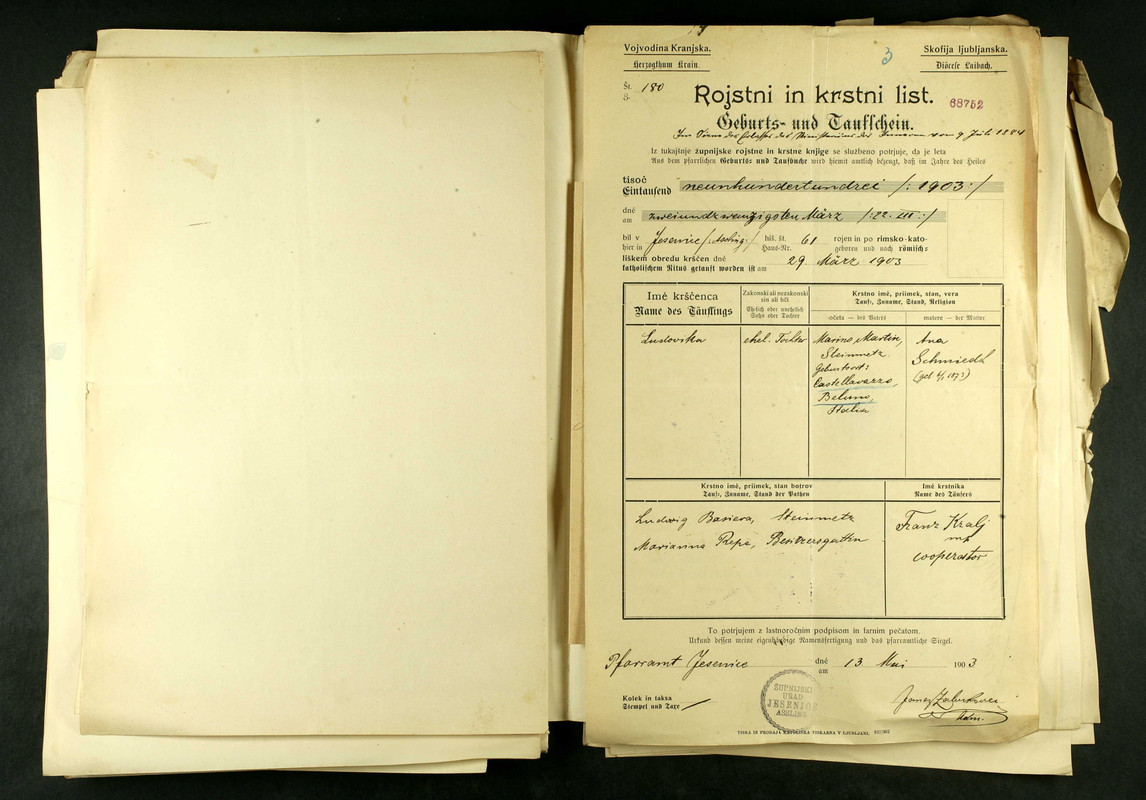 Vojvodina Kranjska.
Herzogthum Krain.
3
Skofija ljubljanska.
Diöcese Laibach.
Št. 180
Rojstni in krstni list.
68752
Geburts- und Taufschein.
Im Sinne des Erlasses des Ministeriums des Innern vom 9 Juli 1884
Iz tukajšnje župnijske rojstne in krstne knjige se službeno potrjuje, da je leta
Aus dem pfarrlichen Geburts- und Taufbuche wird hiemit amtlich bezeugt, daß im Jahre des Heiles
tisoč
Eintausend neunhundertunddrei /: 1903 :/
dné
am zweiundzwanzigsten März /: 22. III :/
bil v Jesenice /: Assling :/ hiš. št. 61 rojen in po rimsko-kato-
hier in Haus-Nr. geboren und nach römisch-
liškem obredu krščen dné 29. März 1903
katholischem Ritus getauft worden ist am
Imé krščenca
Name des Täuflings
Zakonski ali nezakonski
sin ali hči
Ehelich oder unehelich
Sohn oder Tochter
Krstno imé, priimek, stan, vera
Tauf-, Zuname, Stand, Religion
očeta — des Vaters
matere — der Mutter
Ludovika
ehel. Tochter
Marino Martin,
Steinmetz.
Geburtsort:
Castellavazzo,
Beluno,
Italia
Ana
Schmiedl
Krstno imé, priimek, stan botrov
Tauf-, Zuname, Stand der Pathen
Imé krstnika
Name des Täufers
Ludwig Basiera, Steinmetz
Marianna Repe, Besitzersgattin
Franz Kralj
mp
cooperator
To potrjujem z lastnoročnim podpisom in farnim pečatom.
Urkund dessen meine eigenhändige Namensfertigung und das pfarramtliche Siegel.
Pfarramt Jesenice dné 13. Mai 1903
am
Kolek in taksa
Stempel und Taxe
ŽUPNIJSKI
URAD
JESENICE
ASSLING
Adm.
TISKA IN PRODAJA KATOLIŠKA TISKARNA V LJUBLJANI.